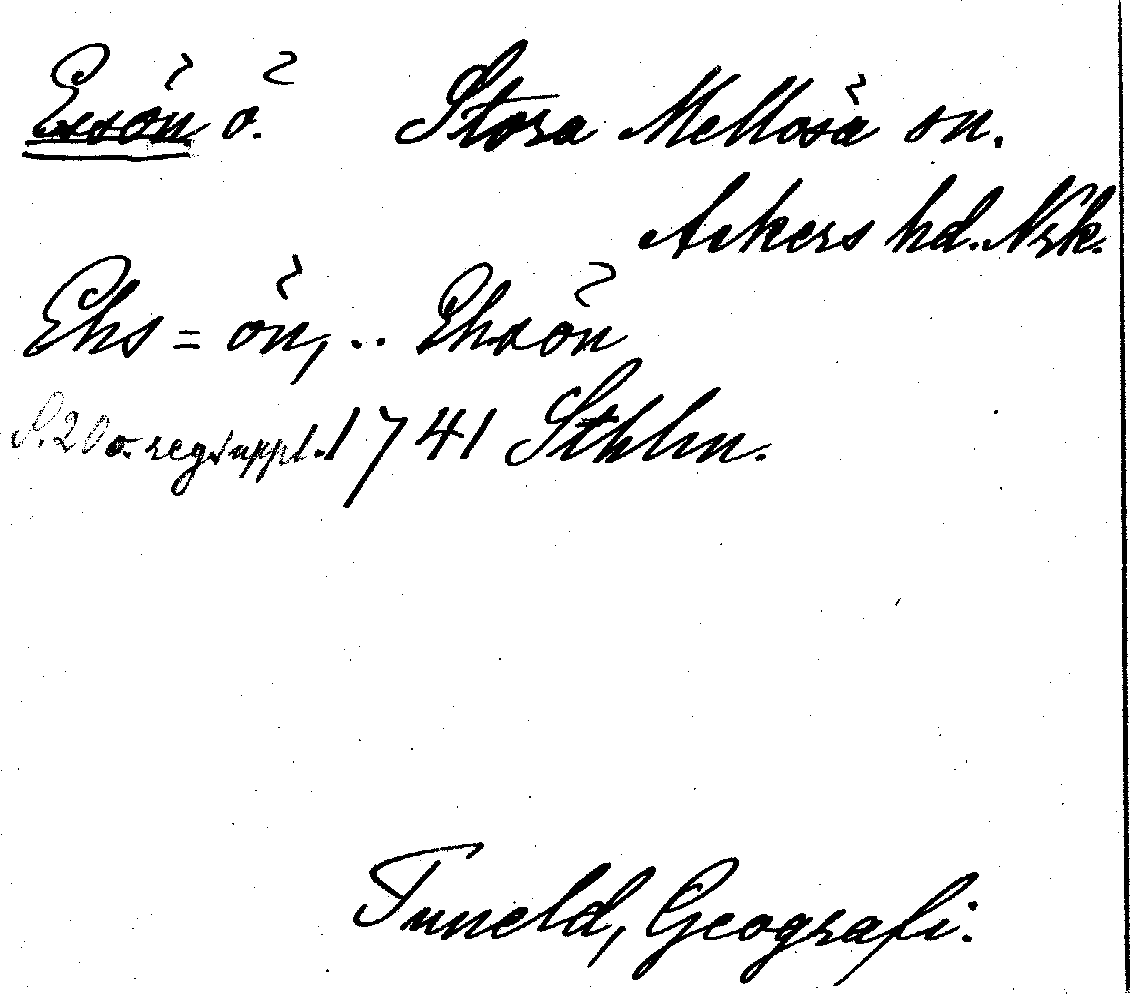 Essön ö. Stora Mellösa sn.
Askers hd. Nrk.
Ehs=ön, .. Ehsön
S. 20 o. reg. suppl. 1741 Sthlm.
Tuneld, Geografi.